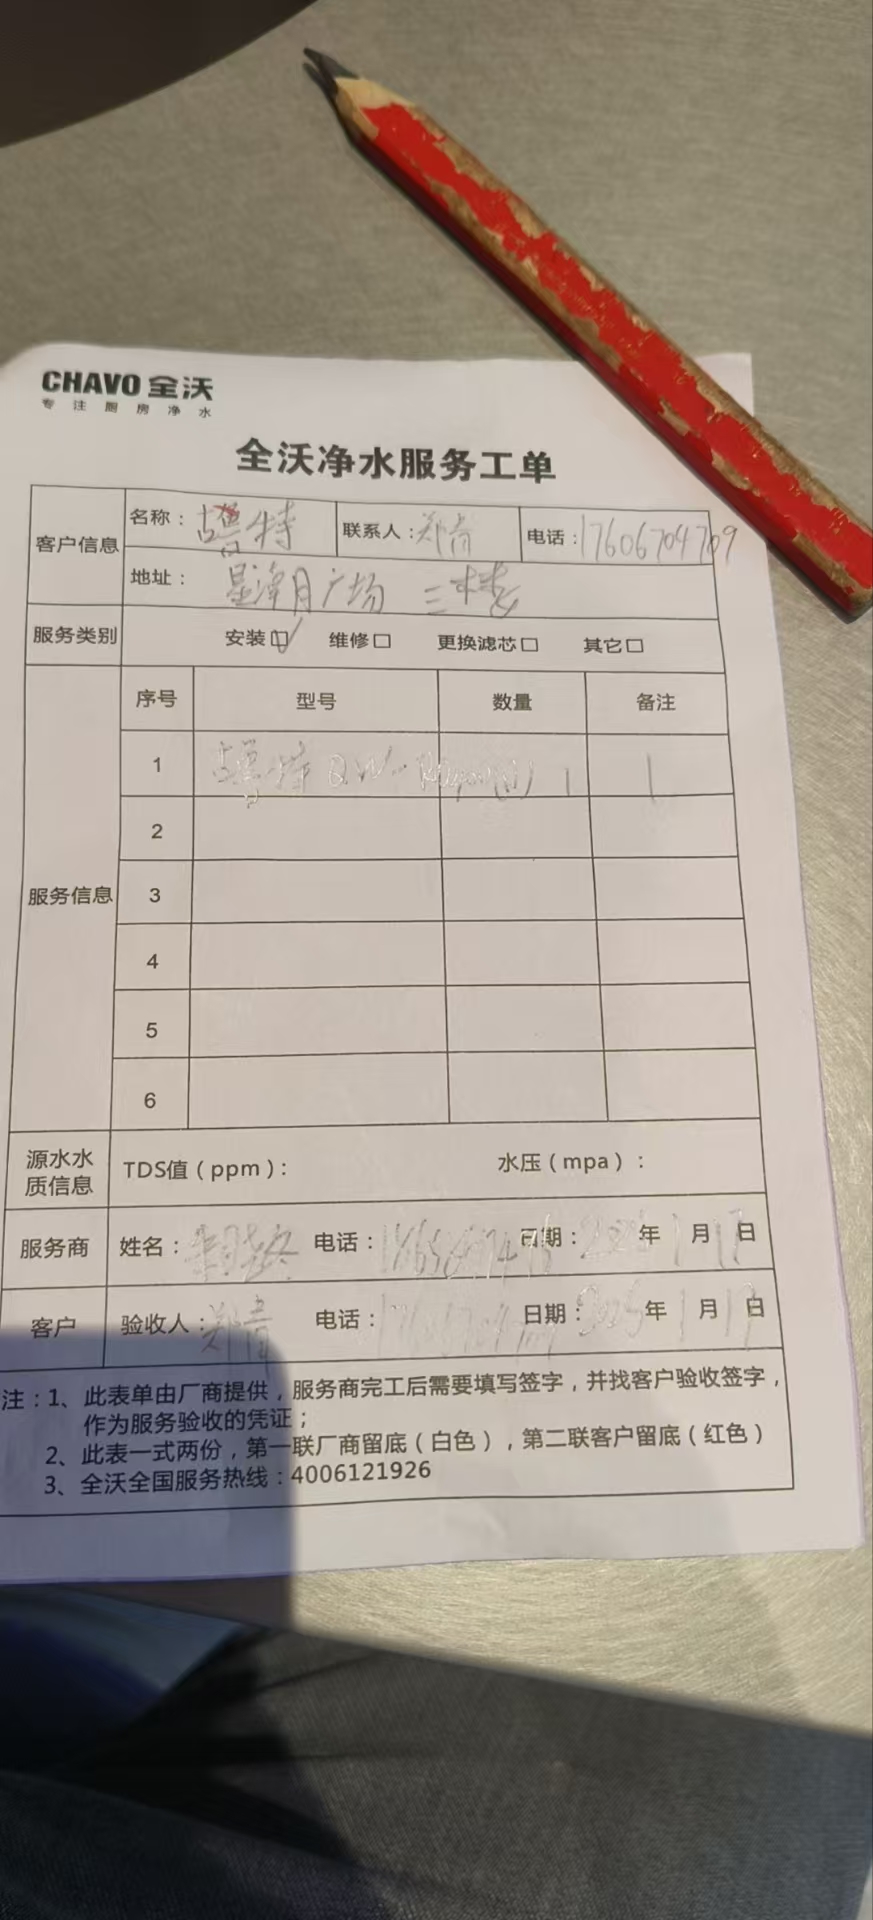 CHAVO 全沃
专注厨房净水
全沃净水服务工单
客户信息
名称： 古鲁特 联系人：郑青 电话：17606704709
地址： 星泽月广场 三楼
服务类别 安装☑ 维修□ 更换滤芯□ 其它□
服务信息
序号 型号 数量 备注
1 古鲁特 QW-R 1
2
3
4
5
6
源水水质信息 TDS值（ppm）： 水压（mpa）：
服务商 姓名： 电话： 日期： 年1月17日
客户 验收人：郑青 电话：17606704709 日期：2025年1月17日
注：1、此表单由厂商提供，服务商完工后需要填写签字，并找客户验收签字，
作为服务验收的凭证；
2、此表一式两份，第一联厂商留底（白色），第二联客户留底（红色）
3、全沃全国服务热线：4006121926